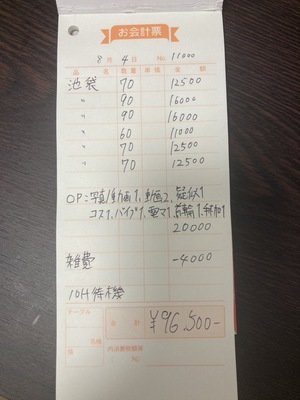 お会計票
8月4日 No. 11000
品名 数量 単価 金額
池袋 70 12500
〃 90 16000
〃 90 16000
〃 60 11000
〃 70 12500
〃 70 12500
OP:写真/動画1、動画2、疑似1
コス1、バイブ1、電マ1、首輪1、
20000
雑費 -4000
10H待機
テーブル
名様
係
合計 ¥96,500-
内消費税額等
( %)